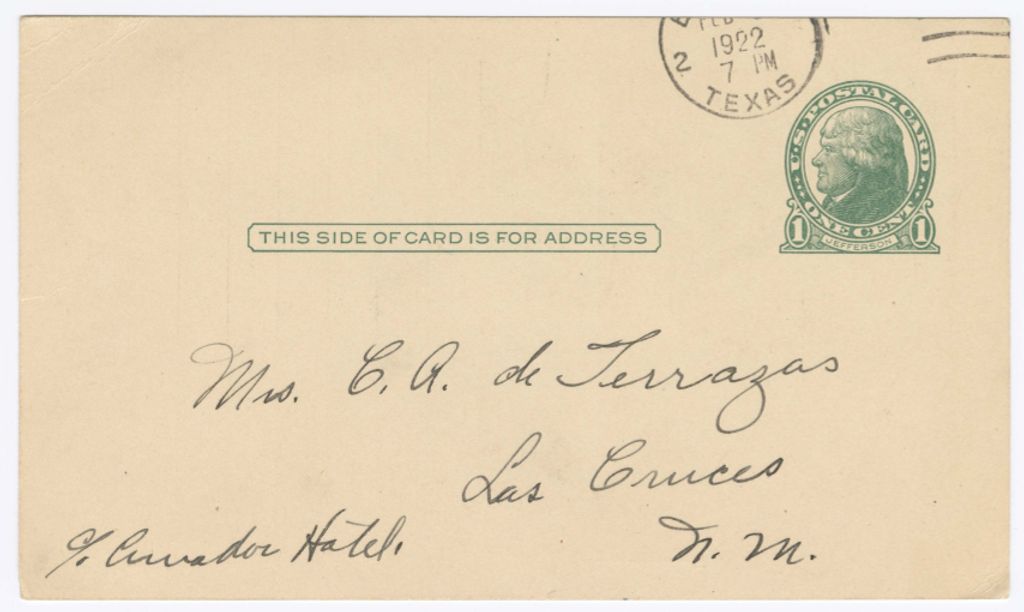 FEB
1922
7 PM
2
TEXAS
U.S. POSTAL CARD
1 ONE CENT 1
JEFFERSON
THIS SIDE OF CARD IS FOR ADDRESS
Mrs. C. A. de Terrazas
Las Cruces
c/o Amador Hotel. N. M.